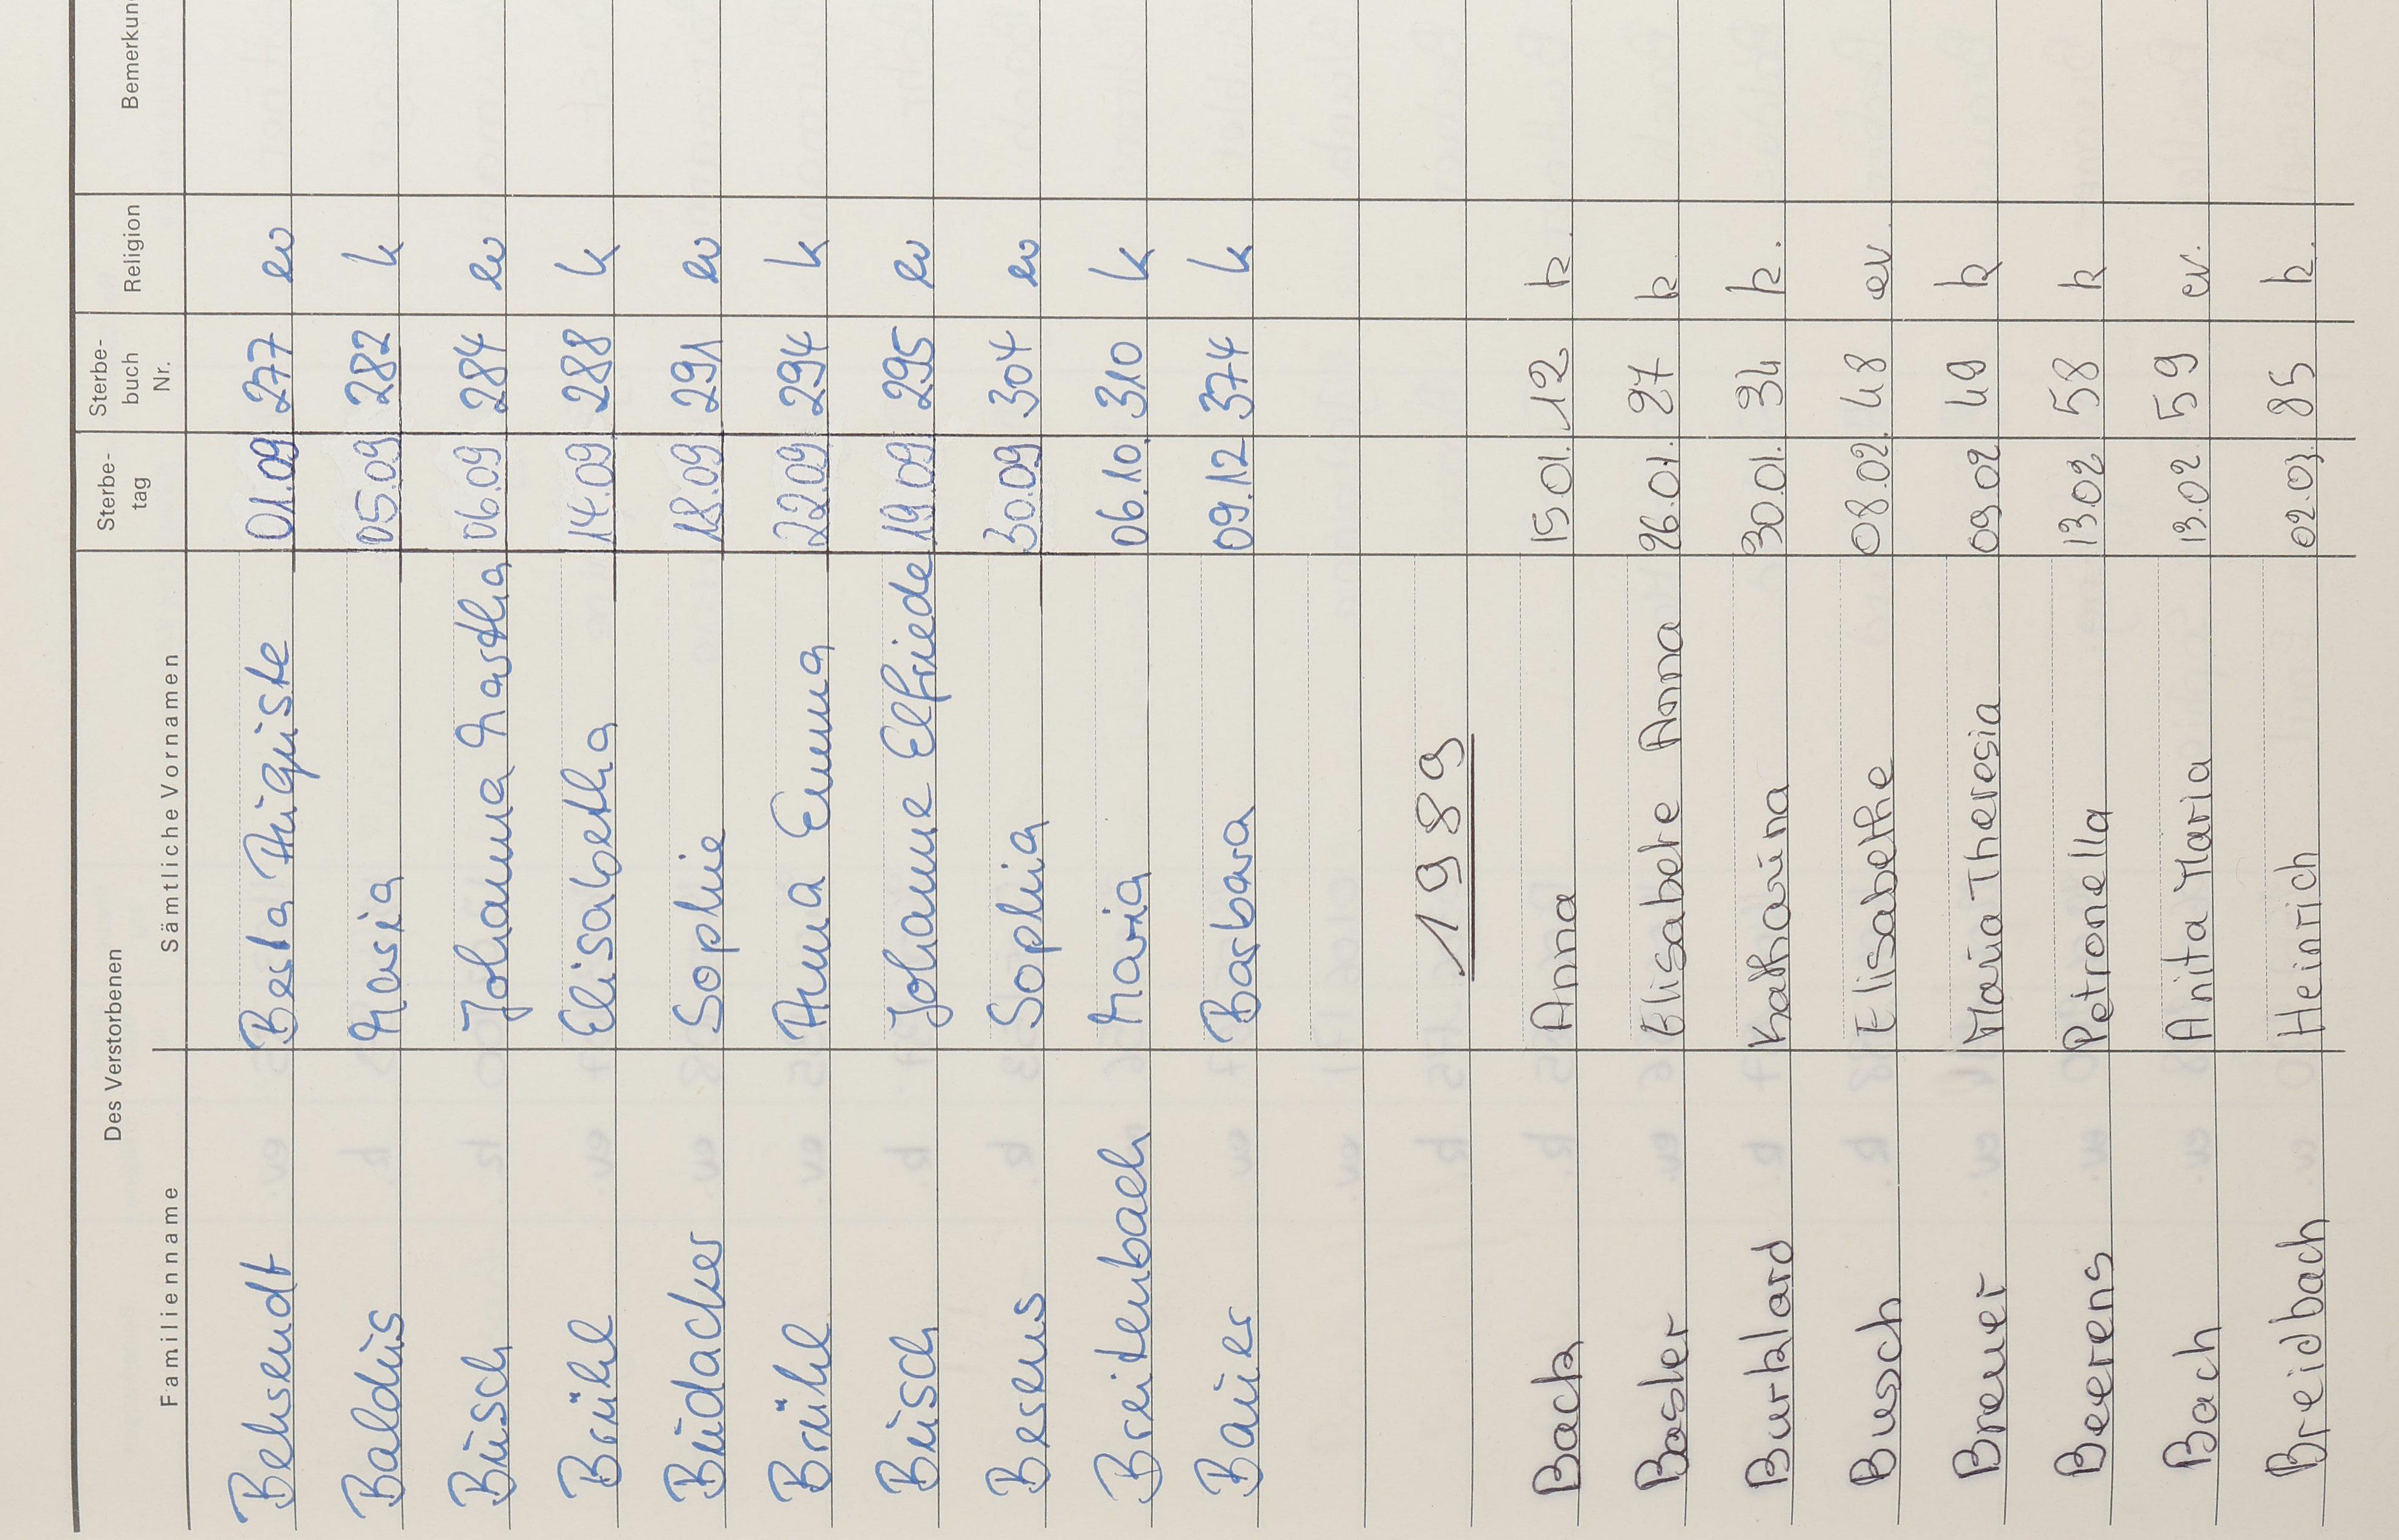 Des Verstorbenen Sterbe-tag Sterbe-buch Nr. Religion Bemerkun
Familienname Sämtliche Vornamen
Behrendt Berta Auguste 01.09 277 ev
Baldus Maria 05.09 282 k
Busch Johanna Martha 06.09 284 ev
Brühl Elisabetha 14.09 288 k
Budacker Sophie 18.09 291 ev
Brühl Anna Emma 22.09 294 k
Busch Johanne Elfriede 19.09 295 ev
Berens Sophia 30.09 304 ev
Breitenbach Maria 06.10. 310 k
Bauer Barbara 09.12 374 k
1989
Back Anna 15.01. 12 k.
Basler Elisabete Anna 26.01. 27 k.
Burklard Katharina 30.01. 34 k.
Busch Elisabethe 08.02. 48 ev.
Breuer Maria Theresia 09.02 49 k
Beverens Petronella 13.02 58 k
Bach Anita Maria 13.02. 59 ev.
Breidbach Heinrich 02.03. 85 k.